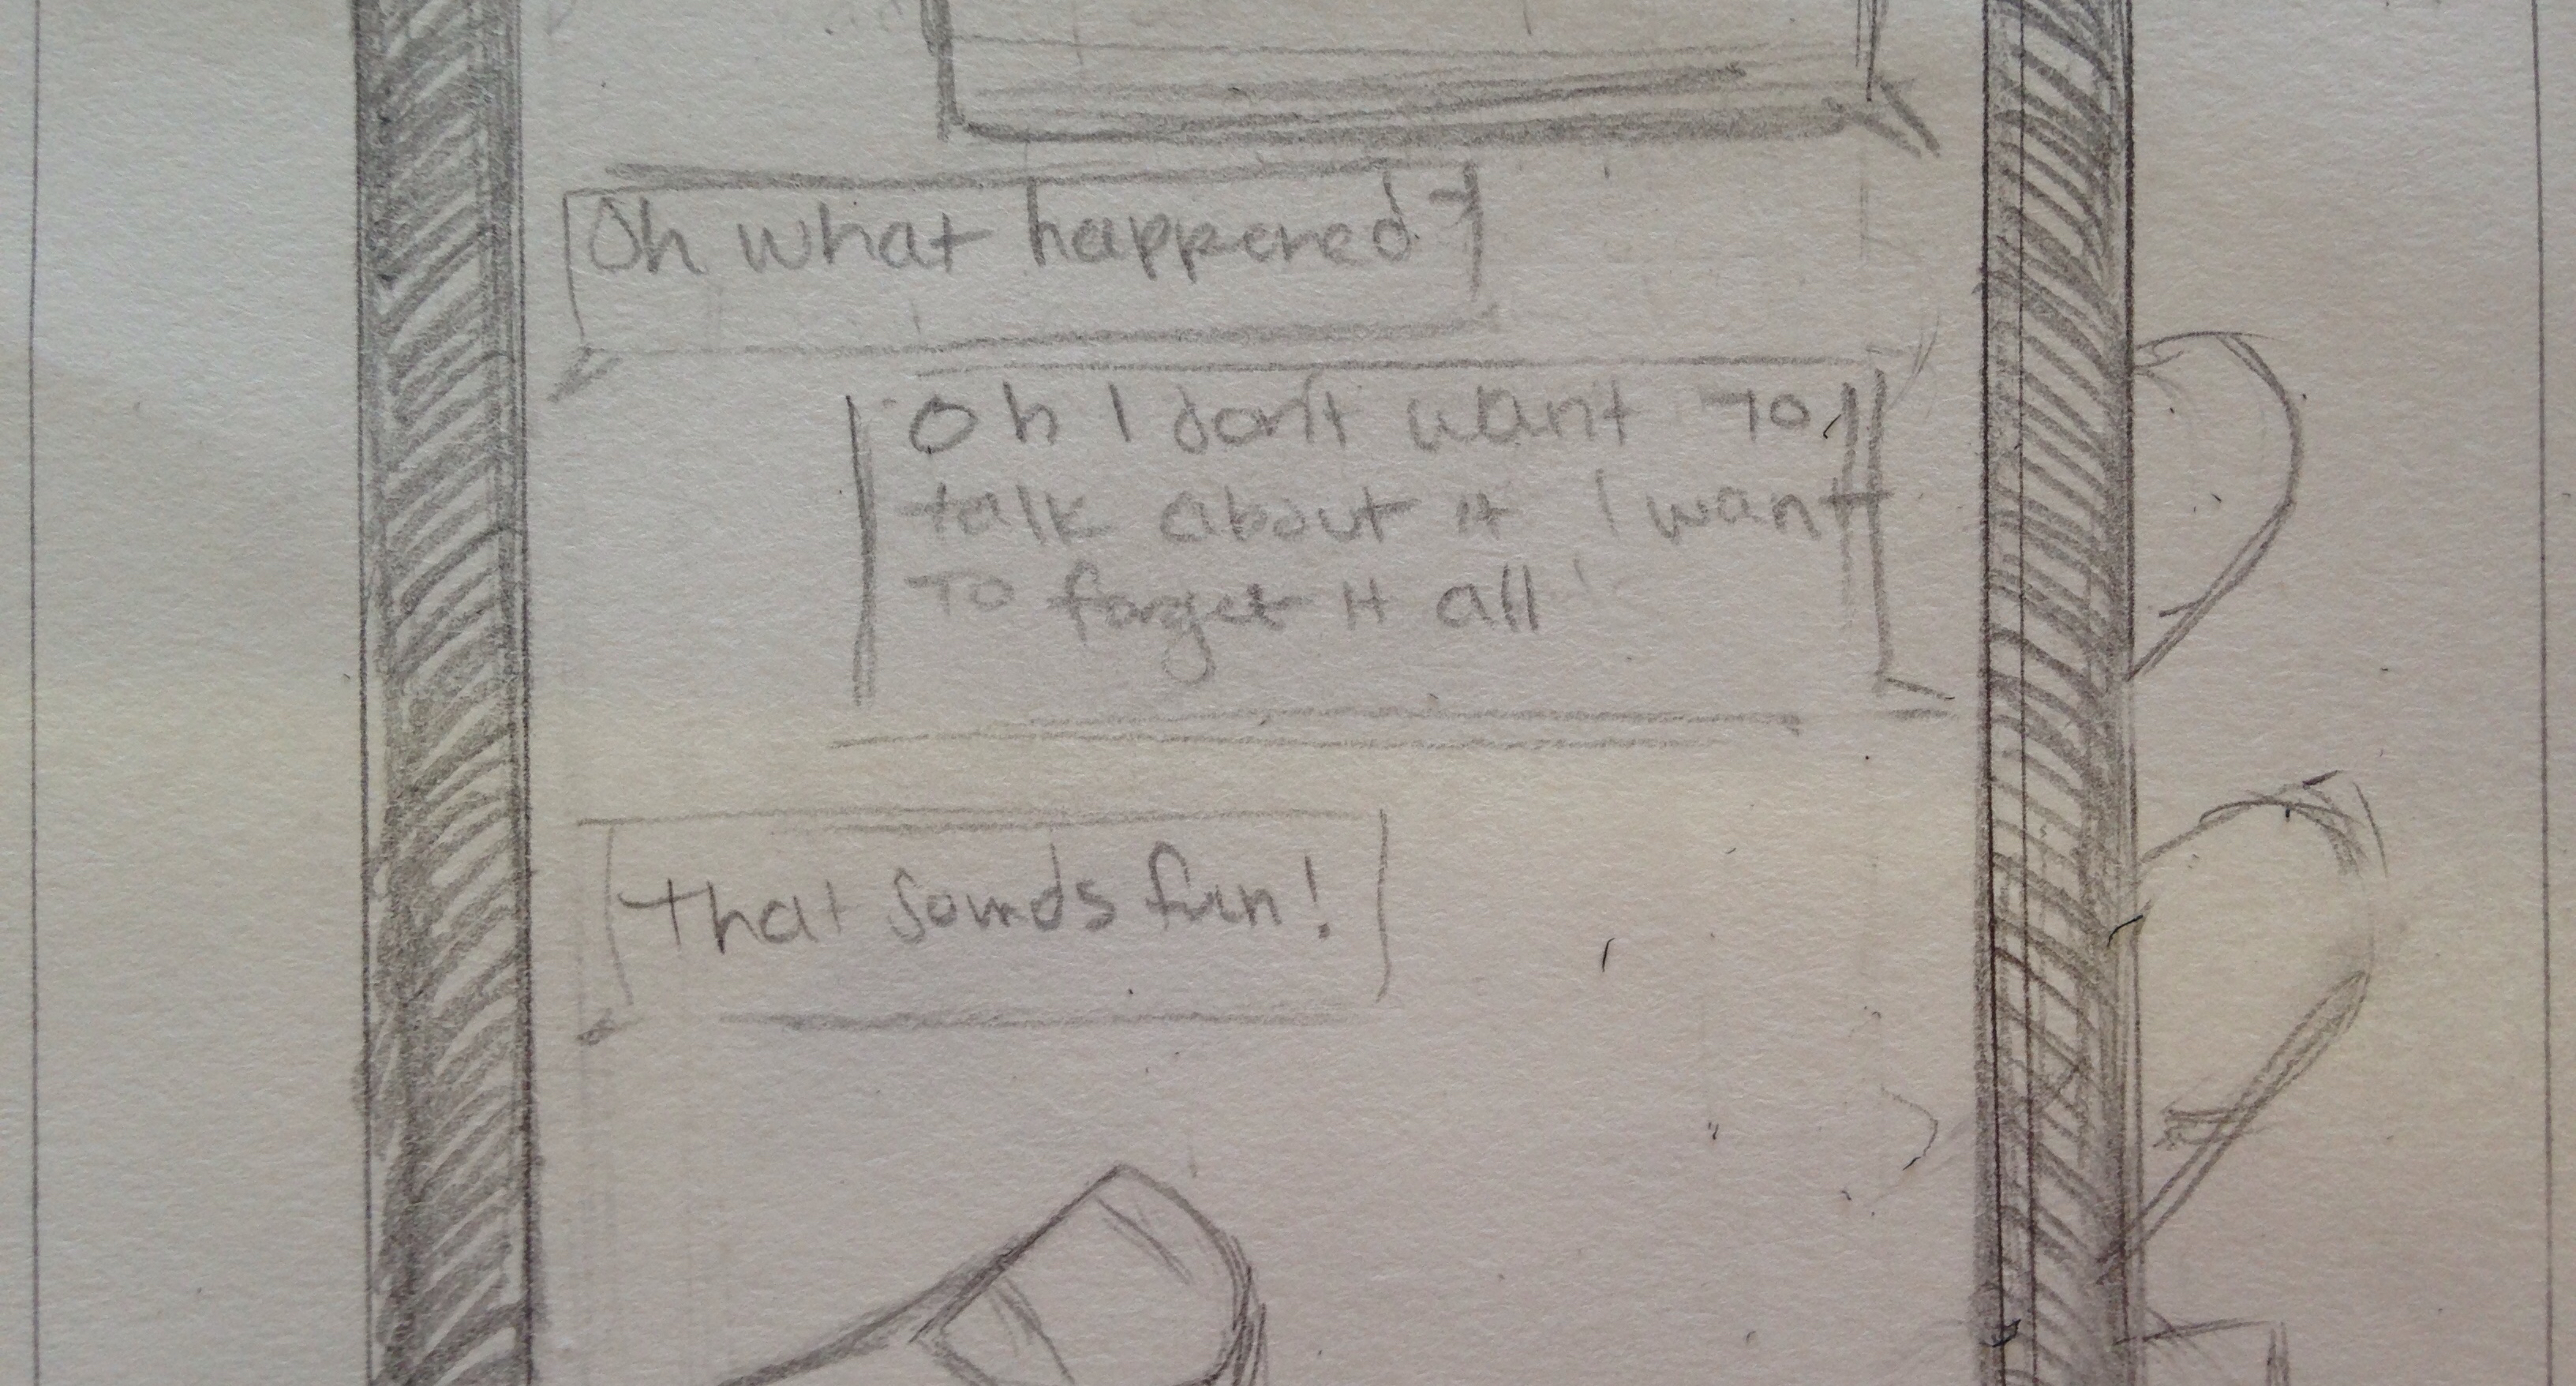 Oh what happened?
Oh I don't want to
talk about it I want
To forget it all
That sounds fun!